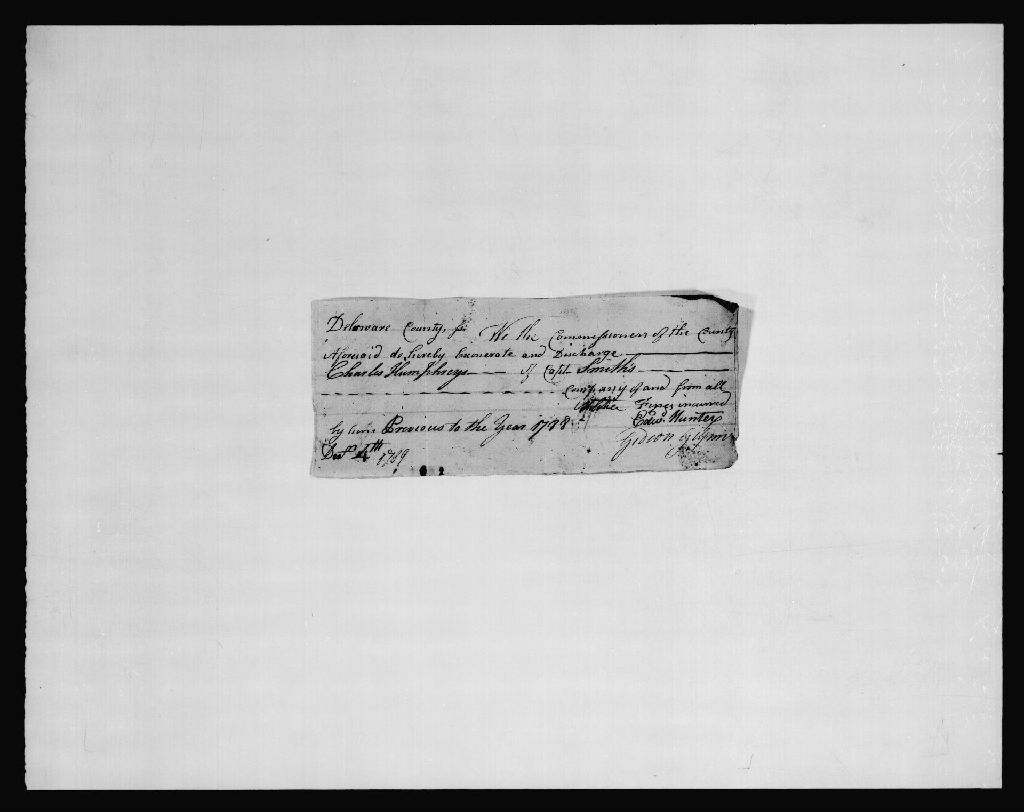 Delaware County, ss. We the Commissioners of the County
Aforesaid do hereby Exonerate and Discharge
Charles Humphreys of Capt. Smith's
Company of and from all
Fines incurred
by him Previous to the Year 1788
Edwd. Hunter
Gideon Gilpin
4th 1789